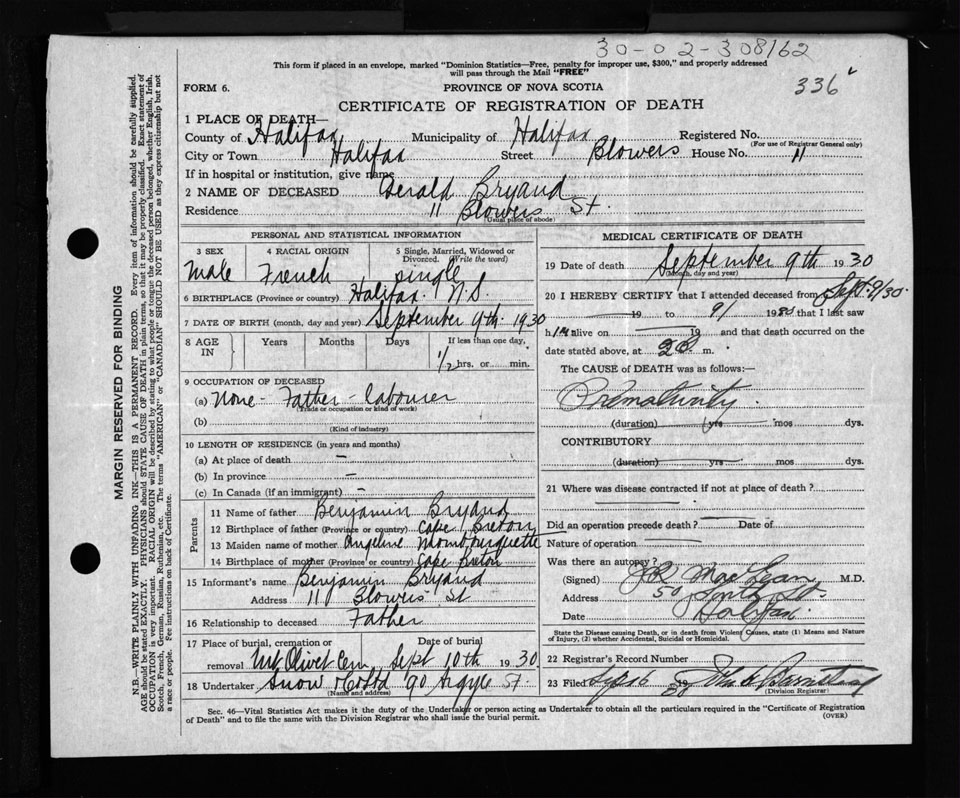 30-02-308162
This form if placed in an envelope, marked "Dominion Statistics—Free, penalty for improper use, $300," and properly addressed
will pass through the Mail "FREE"
336
FORM 6.
PROVINCE OF NOVA SCOTIA
CERTIFICATE OF REGISTRATION OF DEATH
1 PLACE OF DEATH—
County of Halifax Municipality of Halifax Registered No.
(For use of Registrar General only)
City or Town Halifax Street Blowers House No. 11
If in hospital or institution, give name
2 NAME OF DECEASED Gerald Bryand
Residence 11 Blowers St.
(Usual place of abode)
PERSONAL AND STATISTICAL INFORMATION
3 SEX 4 RACIAL ORIGIN 5 Single, Married, Widowed or Divorced. (Write the word)
Male French single
6 BIRTHPLACE (Province or country) Halifax. N.S.
7 DATE OF BIRTH (month, day and year) September 9th. 1930
8 AGE IN Years Months Days If less than one day,
1/2 hrs. or min.
9 OCCUPATION OF DECEASED
(a) None - Father - labourer
(Trade or occupation or kind of work)
(b)
(Kind of industry)
10 LENGTH OF RESIDENCE (in years and months)
(a) At place of death —
(b) In province —
(c) In Canada (if an immigrant) —
Parents
11 Name of father Benjamin Bryand
12 Birthplace of father (Province or country) Cape Breton
13 Maiden name of mother Angeline
14 Birthplace of mother (Province or country) Cape Breton
15 Informant's name Benjamin Bryand
Address 11 Blowers St
16 Relationship to deceased Father
17 Place of burial, cremation or removal Mt Olivet Cem Date of burial Sept 10th 1930
18 Undertaker Snow & Co Ltd 90 Argyle St.
(Name and address)
MEDICAL CERTIFICATE OF DEATH
19 Date of death September 9th 1930
(Month, day and year)
20 I HEREBY CERTIFY that I attended deceased from Sept. 9/30.
19 to 9/ 1930 that I last saw
h/m alive on 19 and that death occurred on the
date stated above, at m.
The CAUSE of DEATH was as follows:—
Prematurity.
(duration) yrs mos dys.
CONTRIBUTORY
(duration) yrs mos dys.
21 Where was disease contracted if not at place of death?
Did an operation precede death? Date of
Nature of operation
Was there an autopsy?
(Signed) MacLean M.D.
Address 50 South St
Date Halifax.
State the Disease causing Death, or in death from Violent Causes, state (1) Means and Nature
of Injury, (2) whether Accidental, Suicidal or Homicidal.
22 Registrar's Record Number
23 Filed Sept 16 1930
(Division Registrar)
Sec. 46—Vital Statistics Act makes it the duty of the Undertaker or person acting as Undertaker to obtain all the particulars required in the "Certificate of Registration
of Death" and to file the same with the Division Registrar who shall issue the burial permit.
(OVER)
MARGIN RESERVED FOR BINDING
N.B.—WRITE PLAINLY WITH UNFADING INK—THIS IS A PERMANENT RECORD. Every item of information should be carefully supplied.
AGE should be stated EXACTLY. PHYSICIANS should STATE CAUSE OF DEATH in plain terms, so that it may be properly classified. Exact statement of
OCCUPATION is very important. RACIAL ORIGIN will be described by stating to what people or tongue the deceased person belonged, whether English, Irish,
Scotch, French, German, Russian, Ruthenian, etc. The terms "AMERICAN" or "CANADIAN" SHOULD NOT BE USED as they express citizenship but not
a race or people. Fee instructions on back of Certificate.